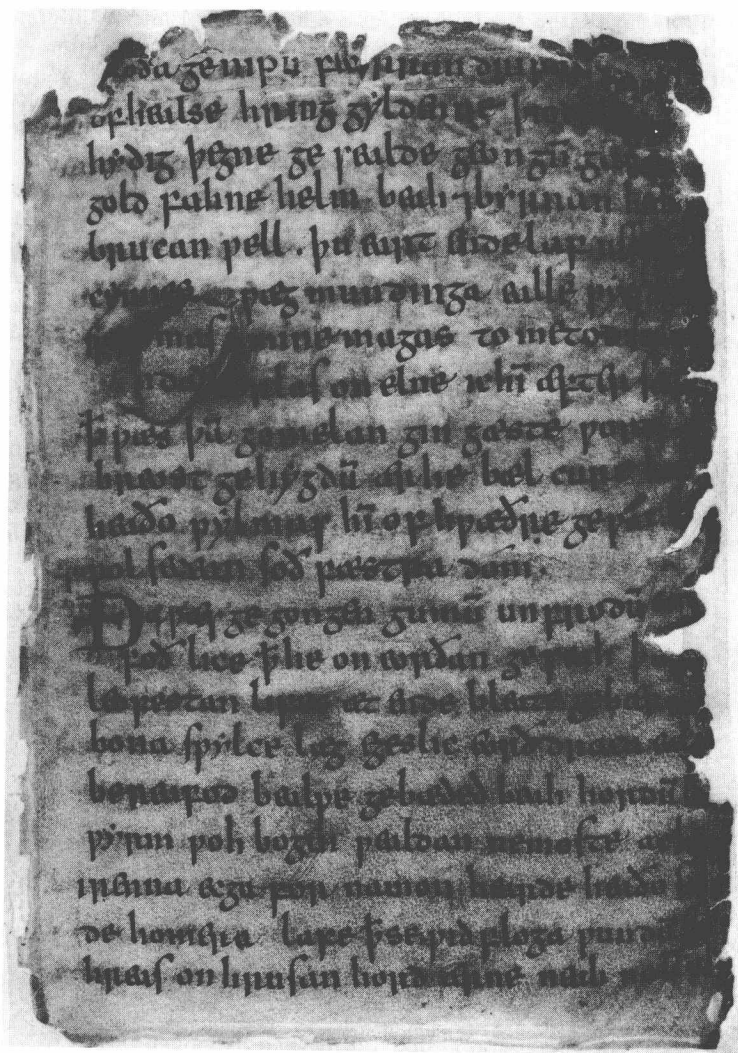 ða genipu feorran drifað
of healse hring gyldenne
hydig þegne ge sealde geongū
gold fahne helm beah ⁊ byrnan
brucan ƿell . þu eart ende laf
cynnes ƿæg mundinga ealle
mine magas to metod
on elne ic hī æfter
ꝥ ƿæs þā gomelan gin gæste ƿord
breost gehygdū ær he bæl cure
heaðo ƿylmas hī of hræðre geƿat
ƿol secean soð fæstra dom .
Ða ƿæs ge gongen gumū un frodū
foð lice ꝥ he on eorðan geseah
leofestan lifes æt ende bleate
bona sƿylce læg egeslic eorð draca
bereafod bealƿe gebæded beah hordū
ƿyrm ƿoh bogen ƿealdan ne moste ac
irenna ecga for namon hearde heaðo
de homera lafe ꝥ se ƿid floga ƿundū
hreas on hrusan hord ærne neah